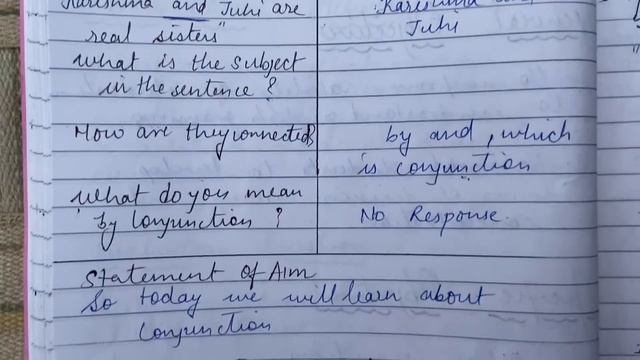 Karishma and Juhi are
real sisters"
what is the subject
in the sentence?
How are they connected?
what do you mean
by Conjunction ?
Karishma
Juhi
by and, which
is conjunction
No Response.
Statement of Aim
So today we will learn about
Conjunction